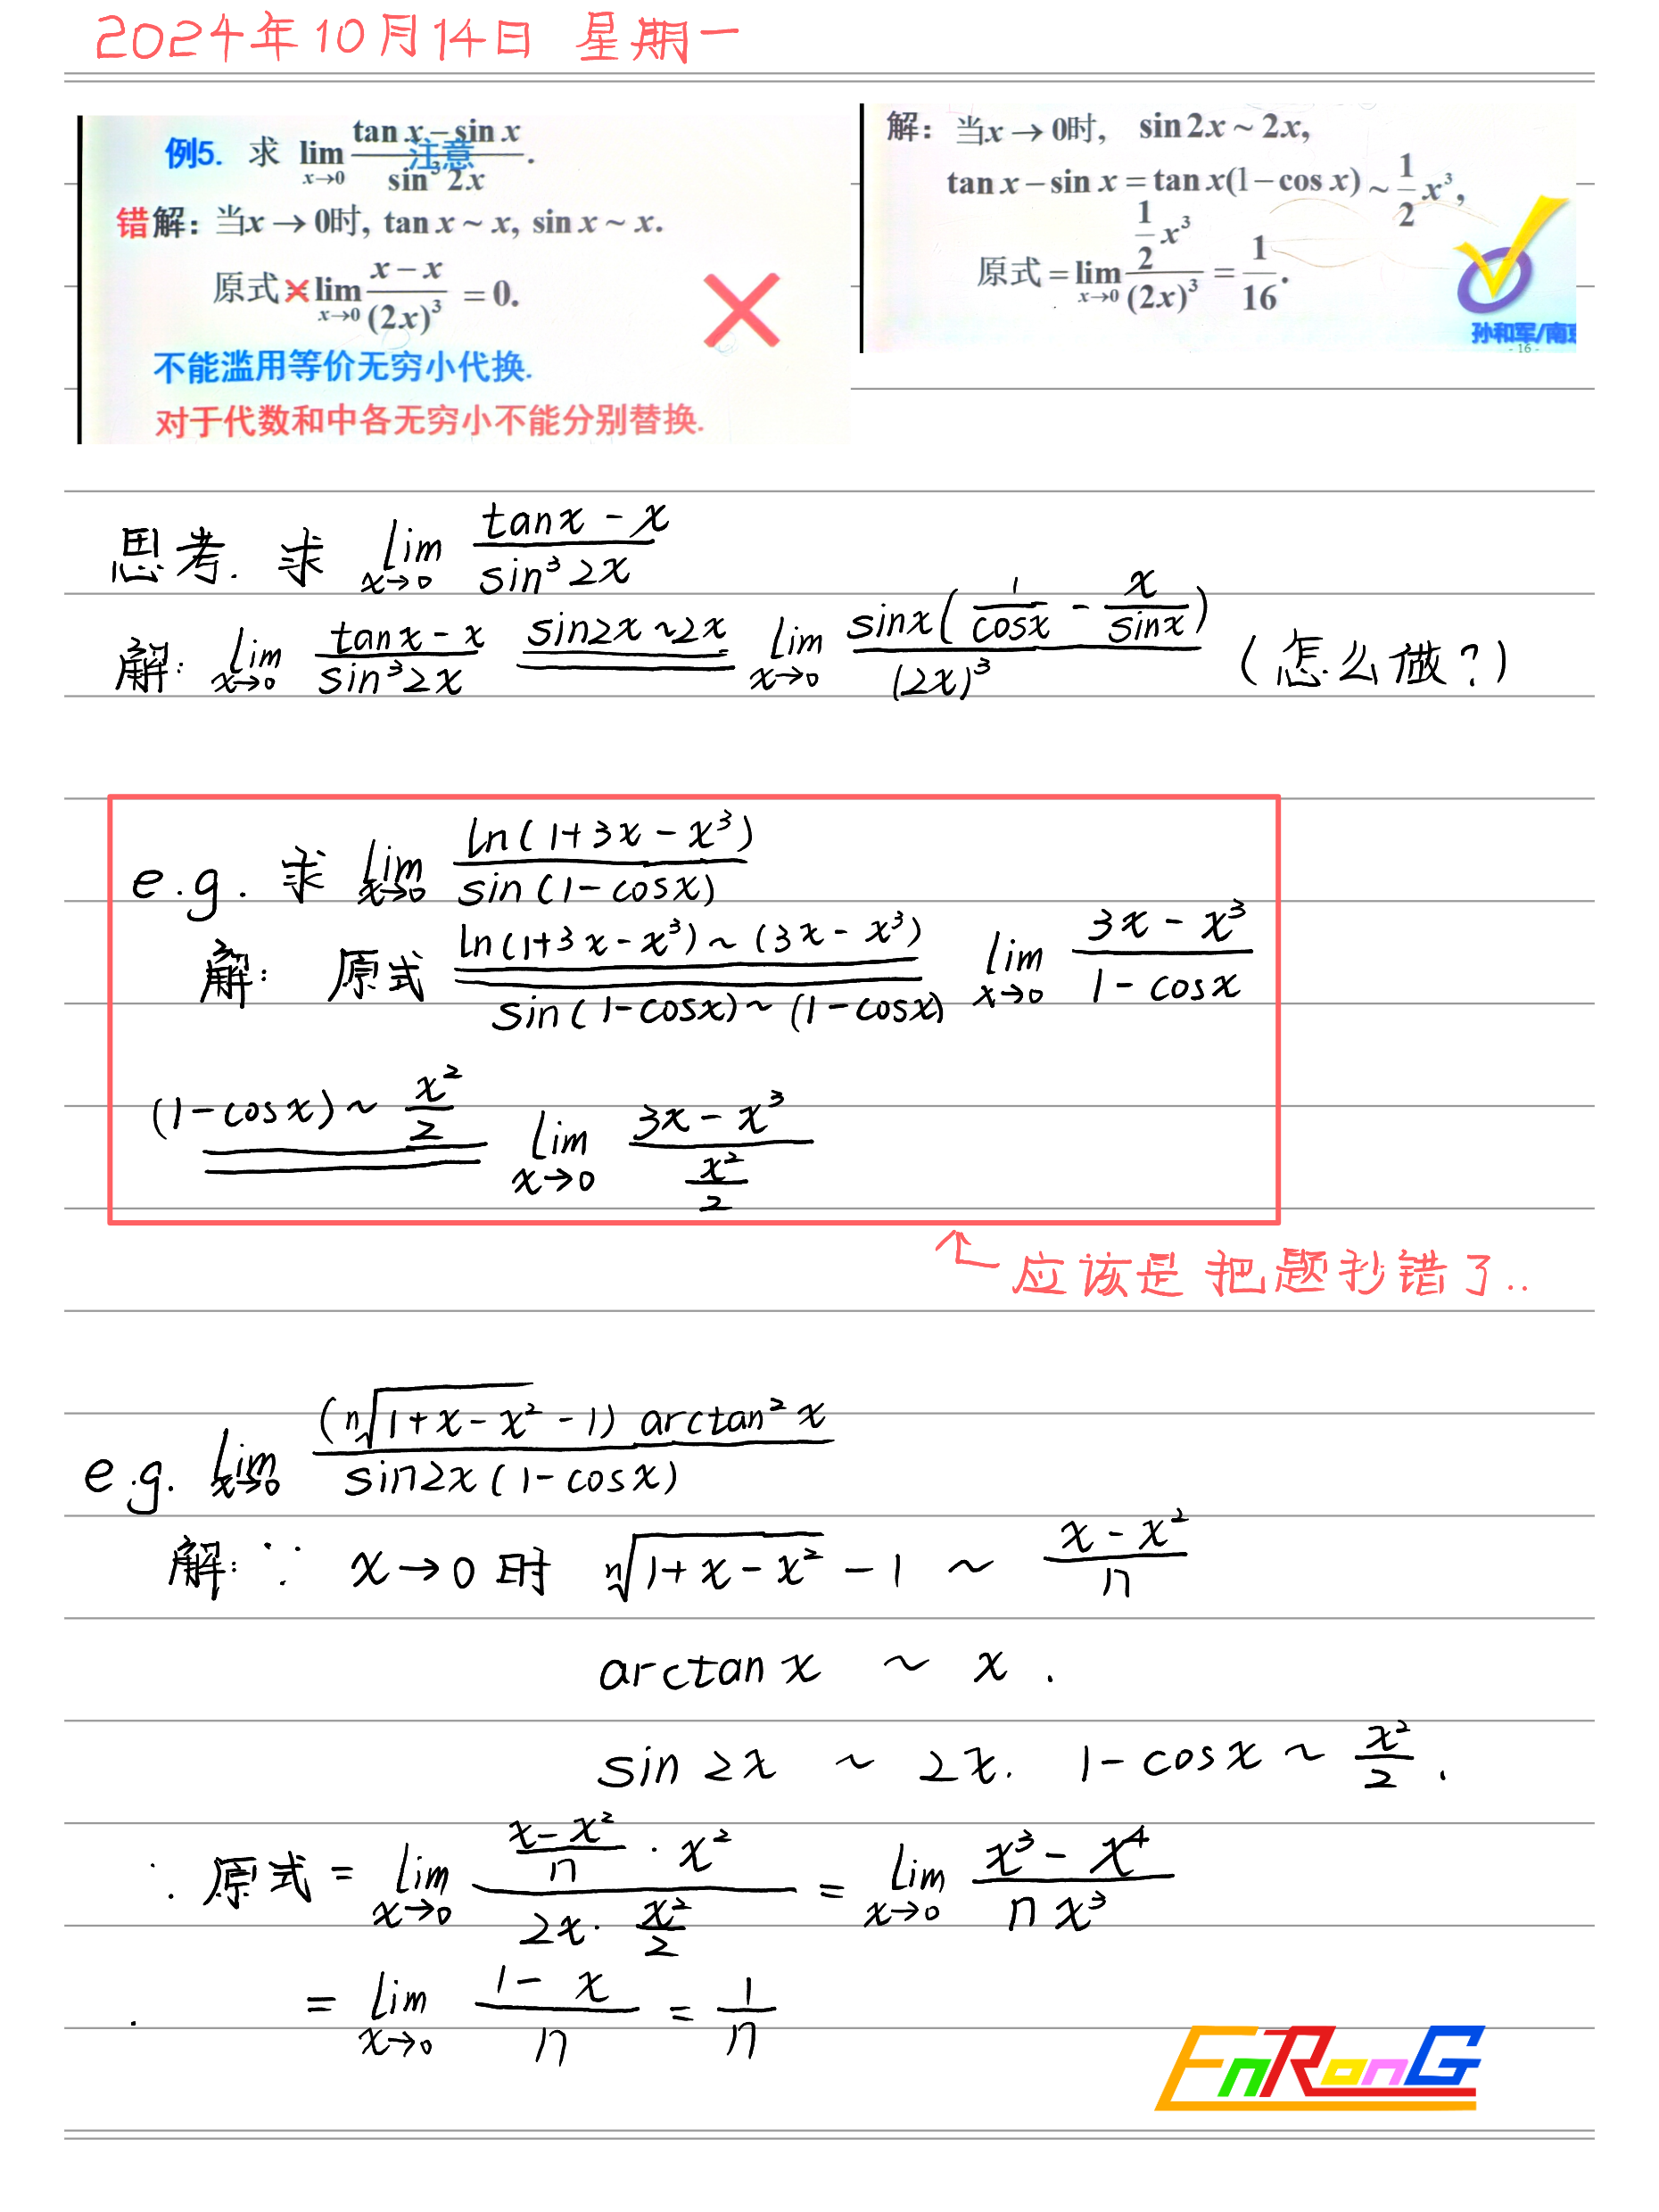 2024年10月14日 星期一
例5. 求 lim x→0 (tan x − sin x)/(sin³ 2x).
注意
错解：当x → 0时, tan x ~ x, sin x ~ x.
原式 = lim x→0 (x − x)/(2x)³ = 0.
不能滥用等价无穷小代换.
对于代数和中各无穷小不能分别替换.
解：当x → 0时, sin 2x ~ 2x,
tan x − sin x = tan x(1 − cos x) ~ 1/2 x³,
原式 = lim x→0 (1/2 x³)/(2x)³ = 1/16.
孙和军/南京
- 16 -
思考. 求 lim x→0 (tanx − x)/(sin³ 2x)
解: lim x→0 (tanx − x)/(sin³ 2x) ==(sin2x ~ 2x)== lim x→0 sinx(1/cosx − x/sinx)/(2x)³ (怎么做?)
e.g. 求 lim x→0 ln(1+3x − x³)/sin(1−cosx)
解: 原式 ==(ln(1+3x − x³) ~ (3x − x³), sin(1−cosx) ~ (1−cosx))== lim x→0 (3x − x³)/(1 − cosx)
==((1−cosx) ~ x²/2)== lim x→0 (3x − x³)/(x²/2)
↖ 应该是把题抄错了..
e.g. lim x→0 (ⁿ√(1+x−x²) −1) arctan² x / sin2x (1−cosx)
解: ∵ x→0 时 ⁿ√(1+x−x²) − 1 ~ (x − x²)/n
arctan x ~ x .
sin 2x ~ 2x. 1−cosx ~ x²/2 .
∴ 原式 = lim x→0 ((x−x²)/n · x²)/(2x · x²/2) = lim x→0 (x³ − x⁴)/(n x³)
= lim x→0 (1− x)/n = 1/n
EnRonG